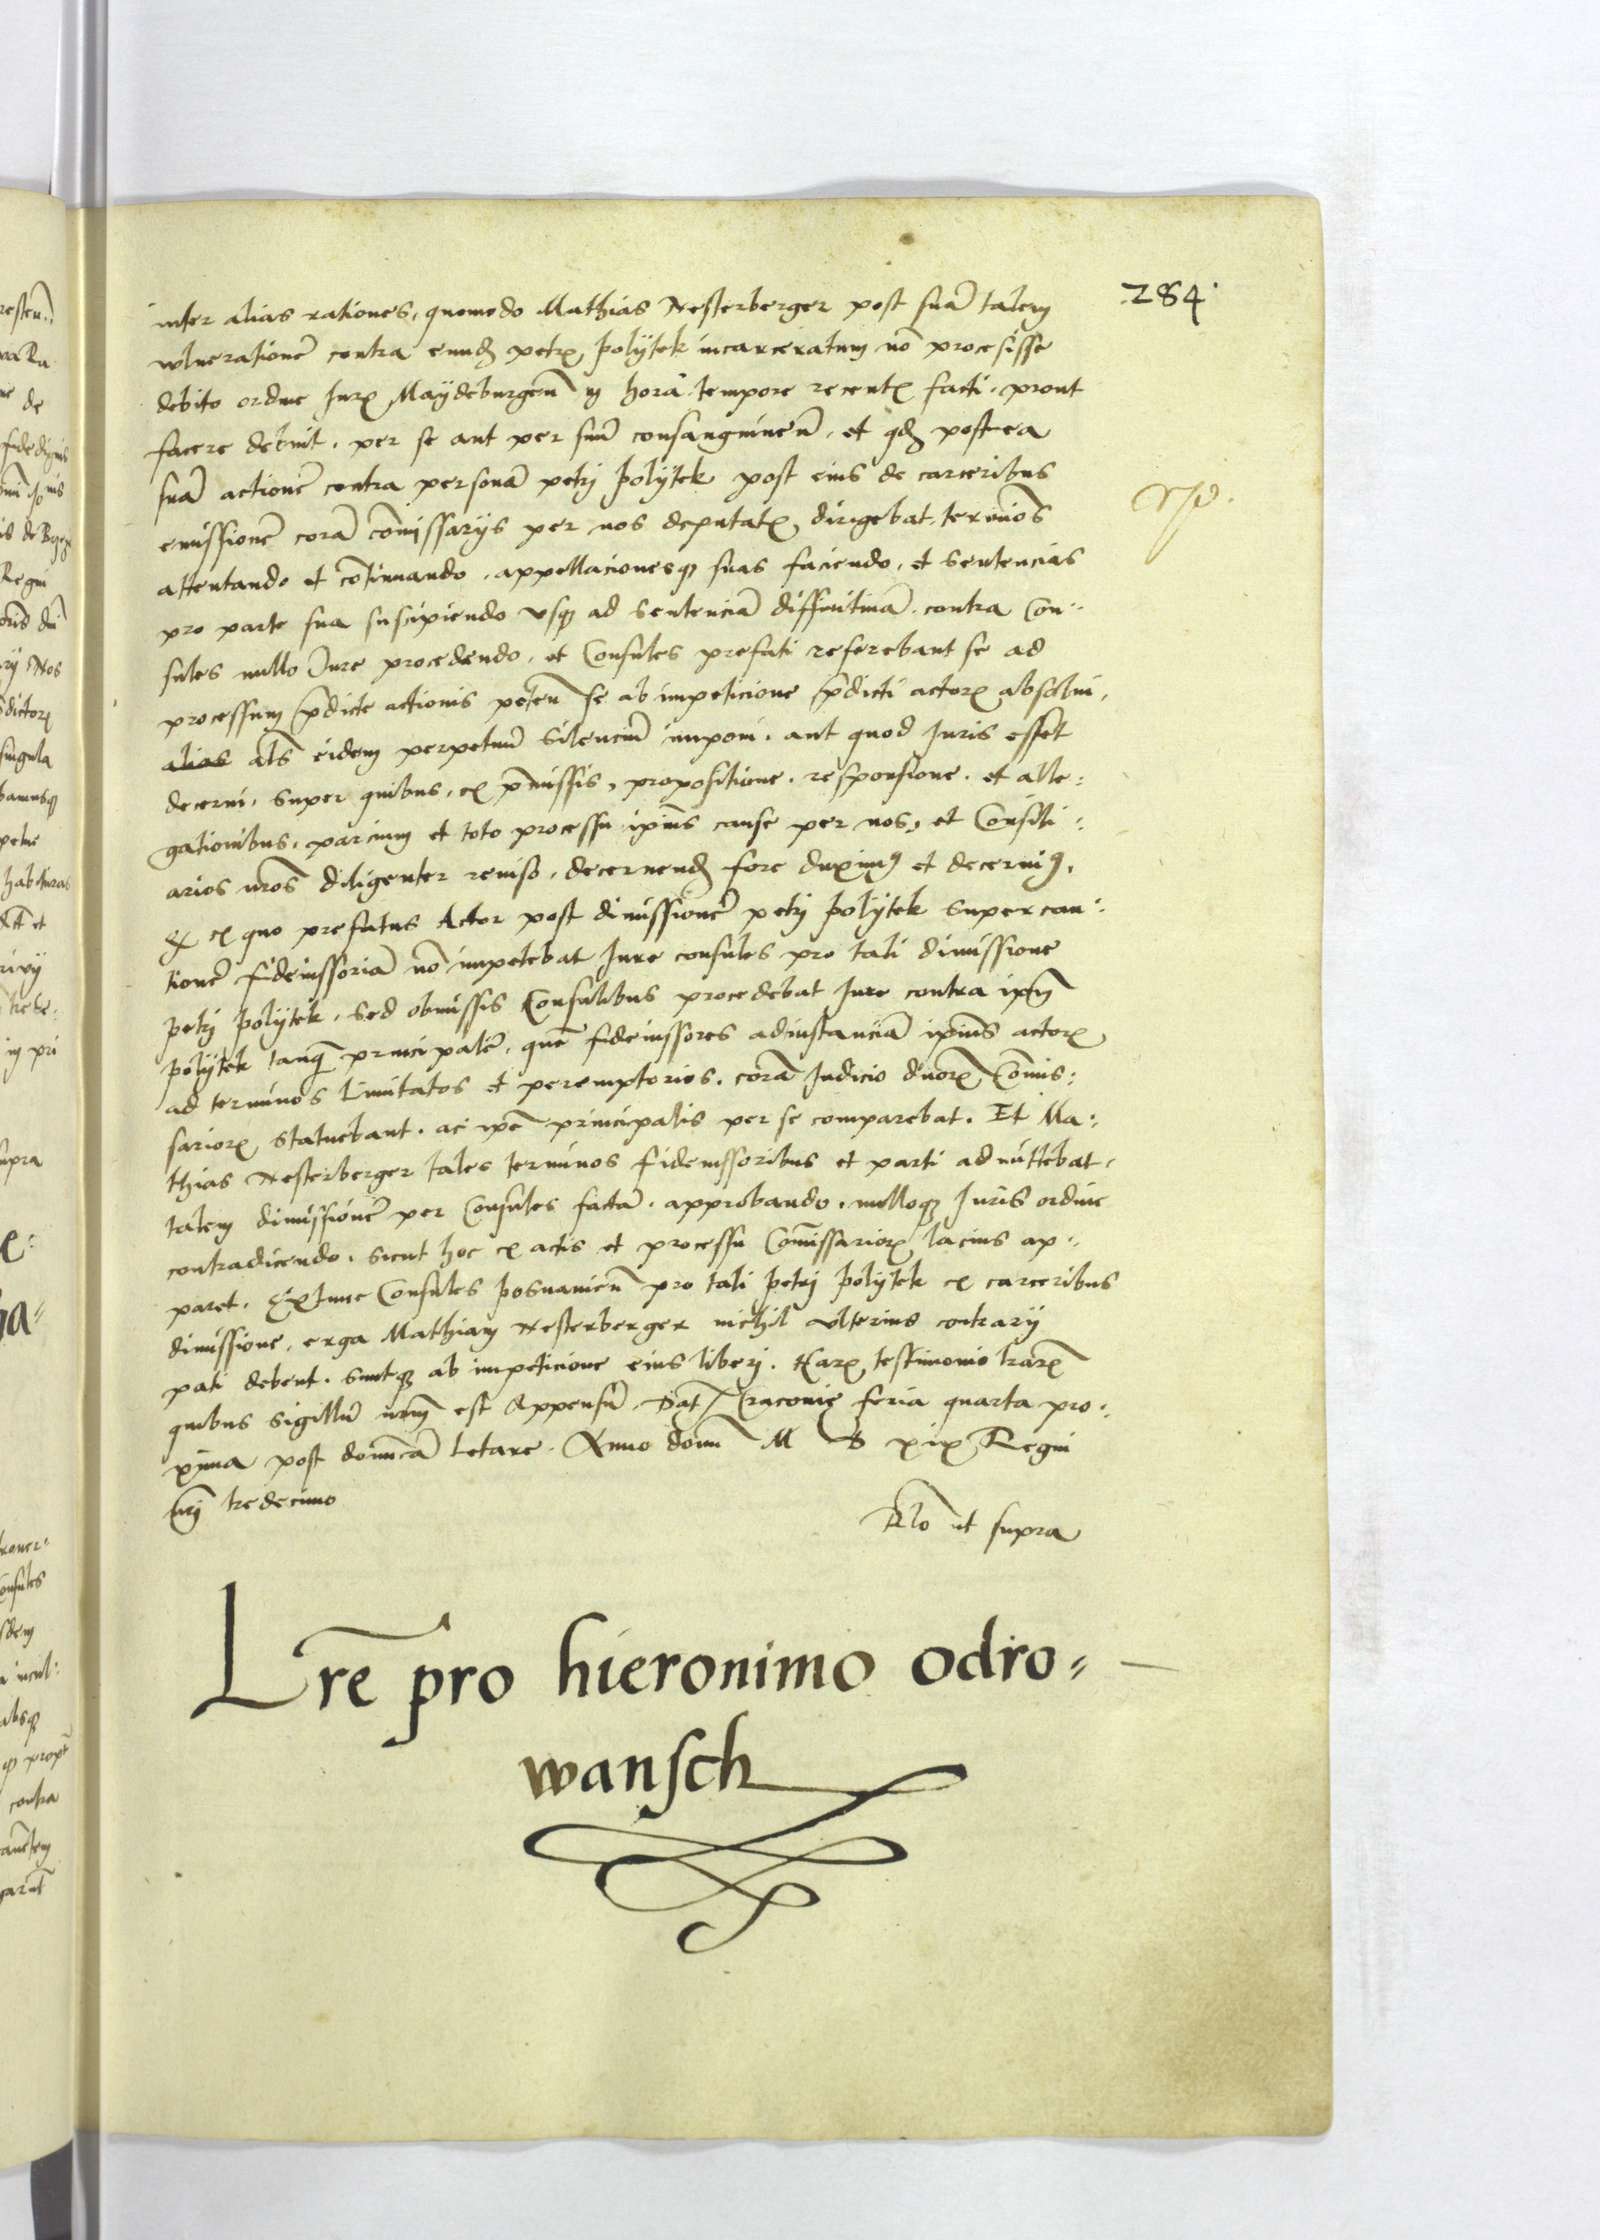 284
inter alias rationes, quomodo Mathias Nesterberger post suā talem
vulneratione͂ contra eund petrū polÿtek incarceratum nō procesisse
debito ordine Juris Maÿdeburgen̄ in hora tempore recentis facti. prout
facere debuit. per se aut per suū consanguineū. et qd postea
suā actionē contra personā petrj polÿtek post eius de carceribus
emissionē corā cōmissarijs per nos deputatis dirigebat. termīos
attentando et cōtinuando. appellacionesq suas faciendo, et sentencias
pro parte sua suscipiendo vsq ad sentenciā diffinitiuā. contra Con-
sules nullo Jure procedendo. et Consules prefati referebant se ad
processum p̄dicte actionis peten̄ se ab impeticione p̄dicti actoris absolui.
alias al̄s eidem perpetuū silenciū imponi. aut quod Juris esset
decerni. super quibus, ex p̄missis, propositione. responsione. et alle-
gationibus. parcium et toto processu ip̄ius cause per nos, et Consili-
arios nr̄os diligenter reuiso. decernend fore duximꝰ et decernimꝰ.
ex quo prefatus Actor post dimissionē petrj polÿtek super cau-
tionē fideiussoriā nō impetebat Jure consules pro tali dimissione
petrj polÿtek. sed obmissis Consulibus procedebat Jure contra ip̄m
polÿtek tanq̄ principalē. quē fideiussores ad instanciā ip̄ius actoris
ad terminos limitatos et peremptorios. corā Judicio duoꝝ Cōmis-
sarioꝝ statuebant. ac ip̄e principalis per se comparebat. Et Ma-
thias Nesterberger tales terminos fideiussoribus et parti admittebat.
talem dimissionē per Consules factā. approbando. nulloq Juris ordine
contradicendo. sicut hoc ex actis et processu Cōmissarioꝝ lacius ap-
paret. Extunc Consules posnanien̄ pro tali petrj polÿtek ex carceribus
dimissione, erga Mathiam Nesterberger nichil vlterius contrarij
pati debent. suntq ab impeticione eius liberj. Haꝝ testimonio lr̄aꝝ
quibus sigillū nr̄m est Appensū Dat Cracovie feria quarta pro-
xima post domīcā letare. Anno domī M D xix Regni
nr̄j tredecimo
Rl̄o ut supra
Lr̄e pro hieronimo odro-
wansch